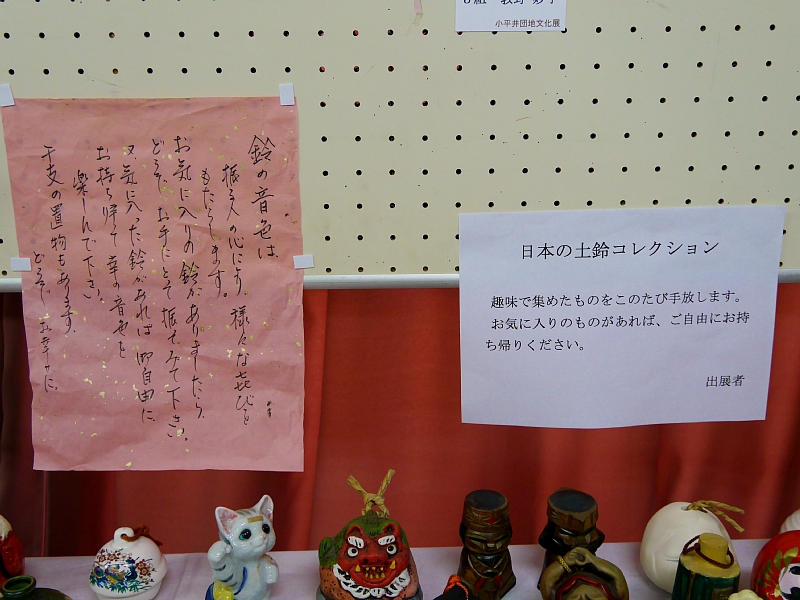 小平井団地文化展
鈴の音色は、
振る人の心により、様々な喜びを
もたらします。
お気に入りの鈴がありましたら、
どうぞ、お手にとって振ってみて下さい。
又、気に入った鈴があれば、御自由に、
お持ち帰って幸の音色を
楽しんで下さい。
干支の置物もあります。
どうぞ、お幸せに。
日本の土鈴コレクション
趣味で集めたものをこのたび手放します。
お気に入りのものがあれば、ご自由にお持
ち帰りください。
出展者